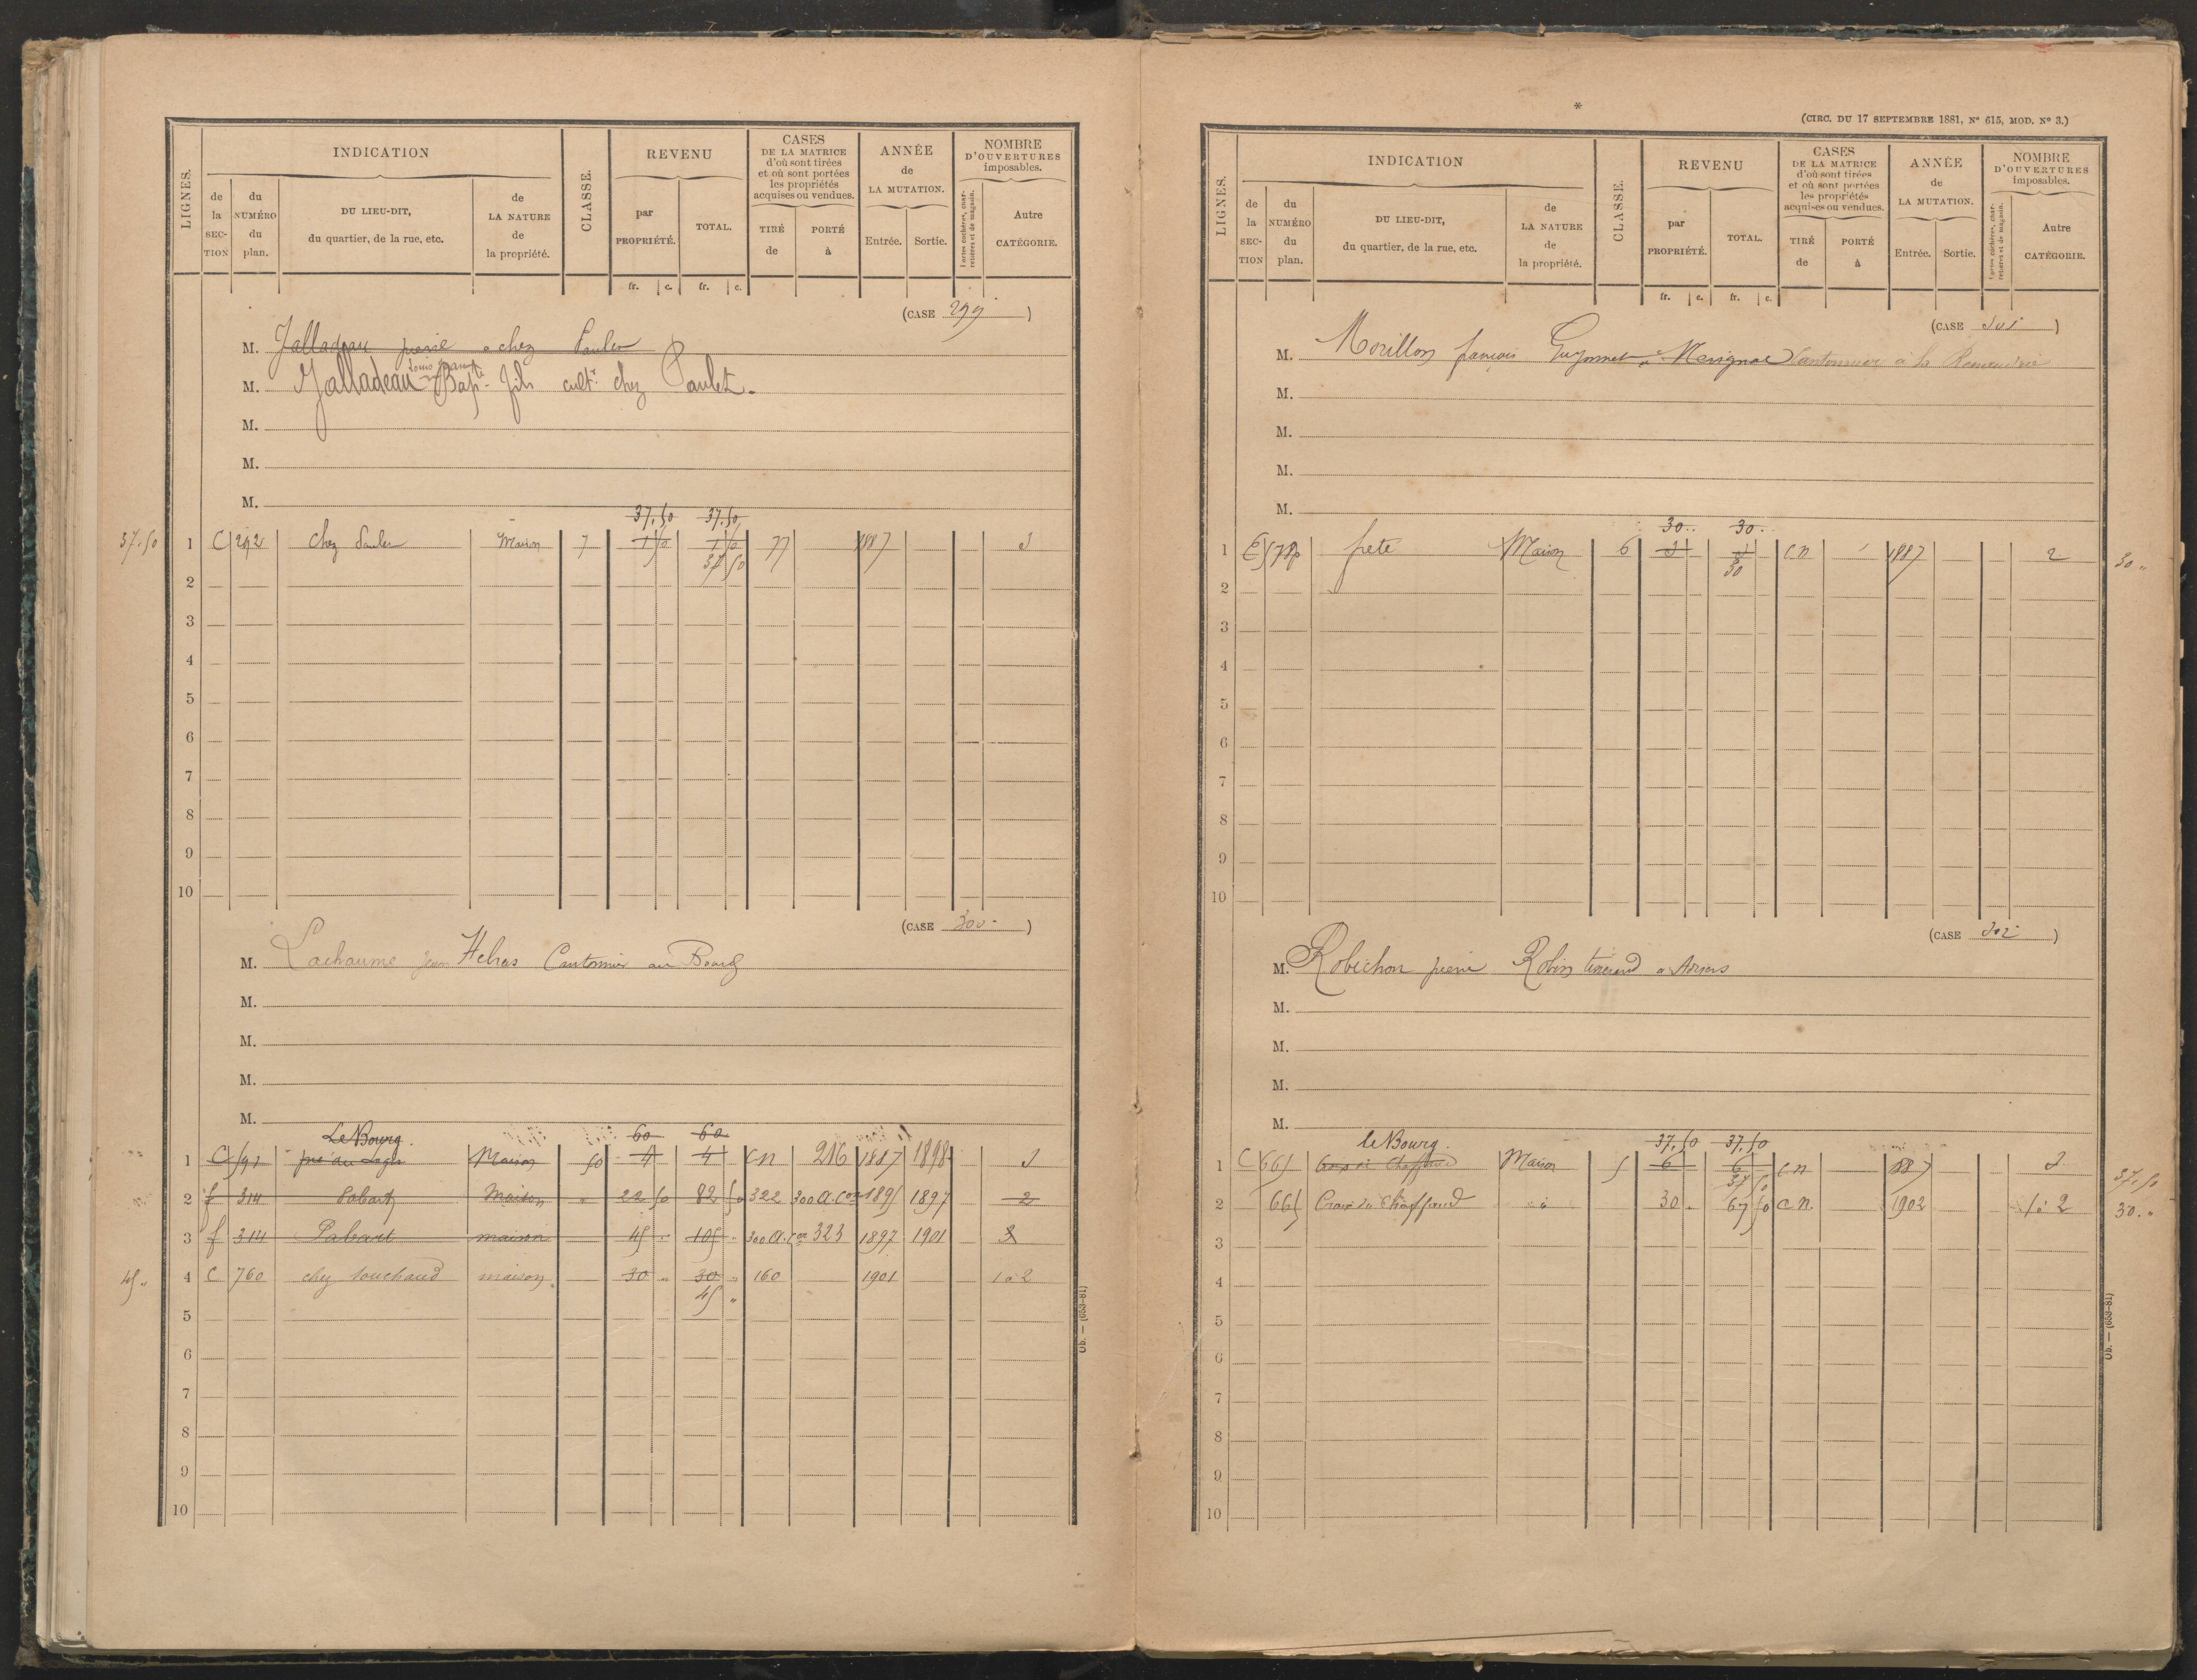 LIGNES.
INDICATION
de la SEC-TION
du NUMÉRO du plan.
DU LIEU-DIT, du quartier, de la rue, etc.
de LA NATURE de la propriété.
CLASSE.
REVENU
par PROPRIÉTÉ.
TOTAL.
CASES DE LA MATRICE d'où sont tirées et où sont portées les propriétés acquises ou vendues.
TIRÉ de
PORTÉ à
ANNÉE de LA MUTATION.
Entrée.
Sortie.
NOMBRE D'OUVERTURES imposables.
Portes cochères, charretières et de magasin.
Autre CATÉGORIE.
fr. c. fr. c.
(CASE 299)
M. Jalladeau pierre a chez Paulet
Louis
M. Jalladeau Bapte fils cultr chez Paulet.
M.
M.
M.
37.50 37.50
37.50 1 C 292 chez Paulet Maison 7 77 1887
37 50
2
3
4
5
6
7
8
9
10
(CASE 300)
M. Lachaume jean Cantonnier au Bourg
M.
M.
M.
M.
Le Bourg. 60 60
1 C 591 pré du Logis Maison 4 4 cn 216 1887 1898
2 f 314 Maison " 22 50 82 50 322 300 a.con 1895 1897 2
3 f 314 maison 45 " 105 " 300 a.con 323 1897 1901
45 " 4 C 760 chez souchaud maison 30 " 30 " 160 1901 1 à 2
45 "
5
6
7
8
9
10
Ob. — (653-81)
*
(CIRC. DU 17 SEPTEMBRE 1881, N° 615, MOD. N° 3.)
LIGNES.
INDICATION
de la SEC-TION
du NUMÉRO du plan.
DU LIEU-DIT, du quartier, de la rue, etc.
de LA NATURE de la propriété.
CLASSE.
REVENU
par PROPRIÉTÉ.
TOTAL.
CASES DE LA MATRICE d'où sont tirées et où sont portées les propriétés acquises ou vendues.
TIRÉ de
PORTÉ à
ANNÉE de LA MUTATION.
Entrée.
Sortie.
NOMBRE D'OUVERTURES imposables.
Portes cochères, charretières et de magasin.
Autre CATÉGORIE.
fr. c. fr. c.
(CASE 301)
M. Morillon françois Guyonnet a Marignac Cantonnier à la
M.
M.
M.
M.
30 " 30 "
1 578p frete Maison 6 cn 1887 2 30 "
30
2
3
4
5
6
7
8
9
10
(CASE 302)
M. Robichon pierre Robin tisserand a
M.
M.
M.
M.
le Bourg. 37.50 37.50
1 C 665 Maison 5 6 6 cn 1887 37.50
37 50
2 665 Croix du Chaffaud 30 " 67 50 cn 1902 1 à 2 30. "
3
4
5
6
7
8
9
10
Ob. — (653-81)